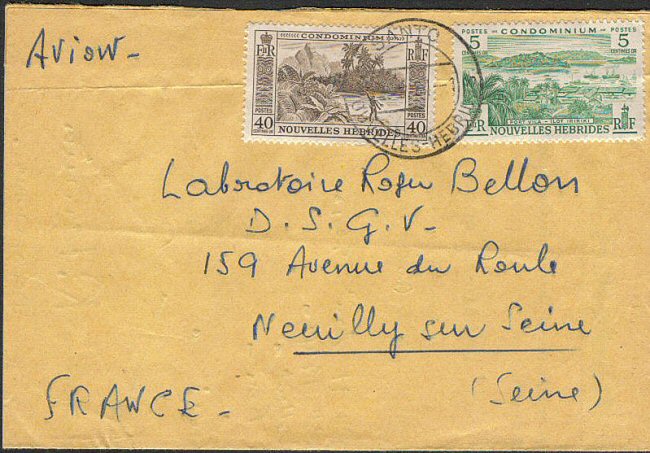 Avion-
CONDOMINIUM
E II R
RF
POSTES
POSTES
40
CENTIMES OR
NOUVELLES HEBRIDES
40
SANTO
LLES-HEBRI
POSTES - CONDOMINIUM - POSTES
5
CENTIMES OR
5
CENTIMES OR
PORT-VILA - ILOT IRIRIKI
NOUVELLES HEBRIDES
RF
Laboratoire Roger Bellon
D. S. G. V-
159 Avenue du Roule
Neuilly sur Seine
(Seine)
FRANCE-